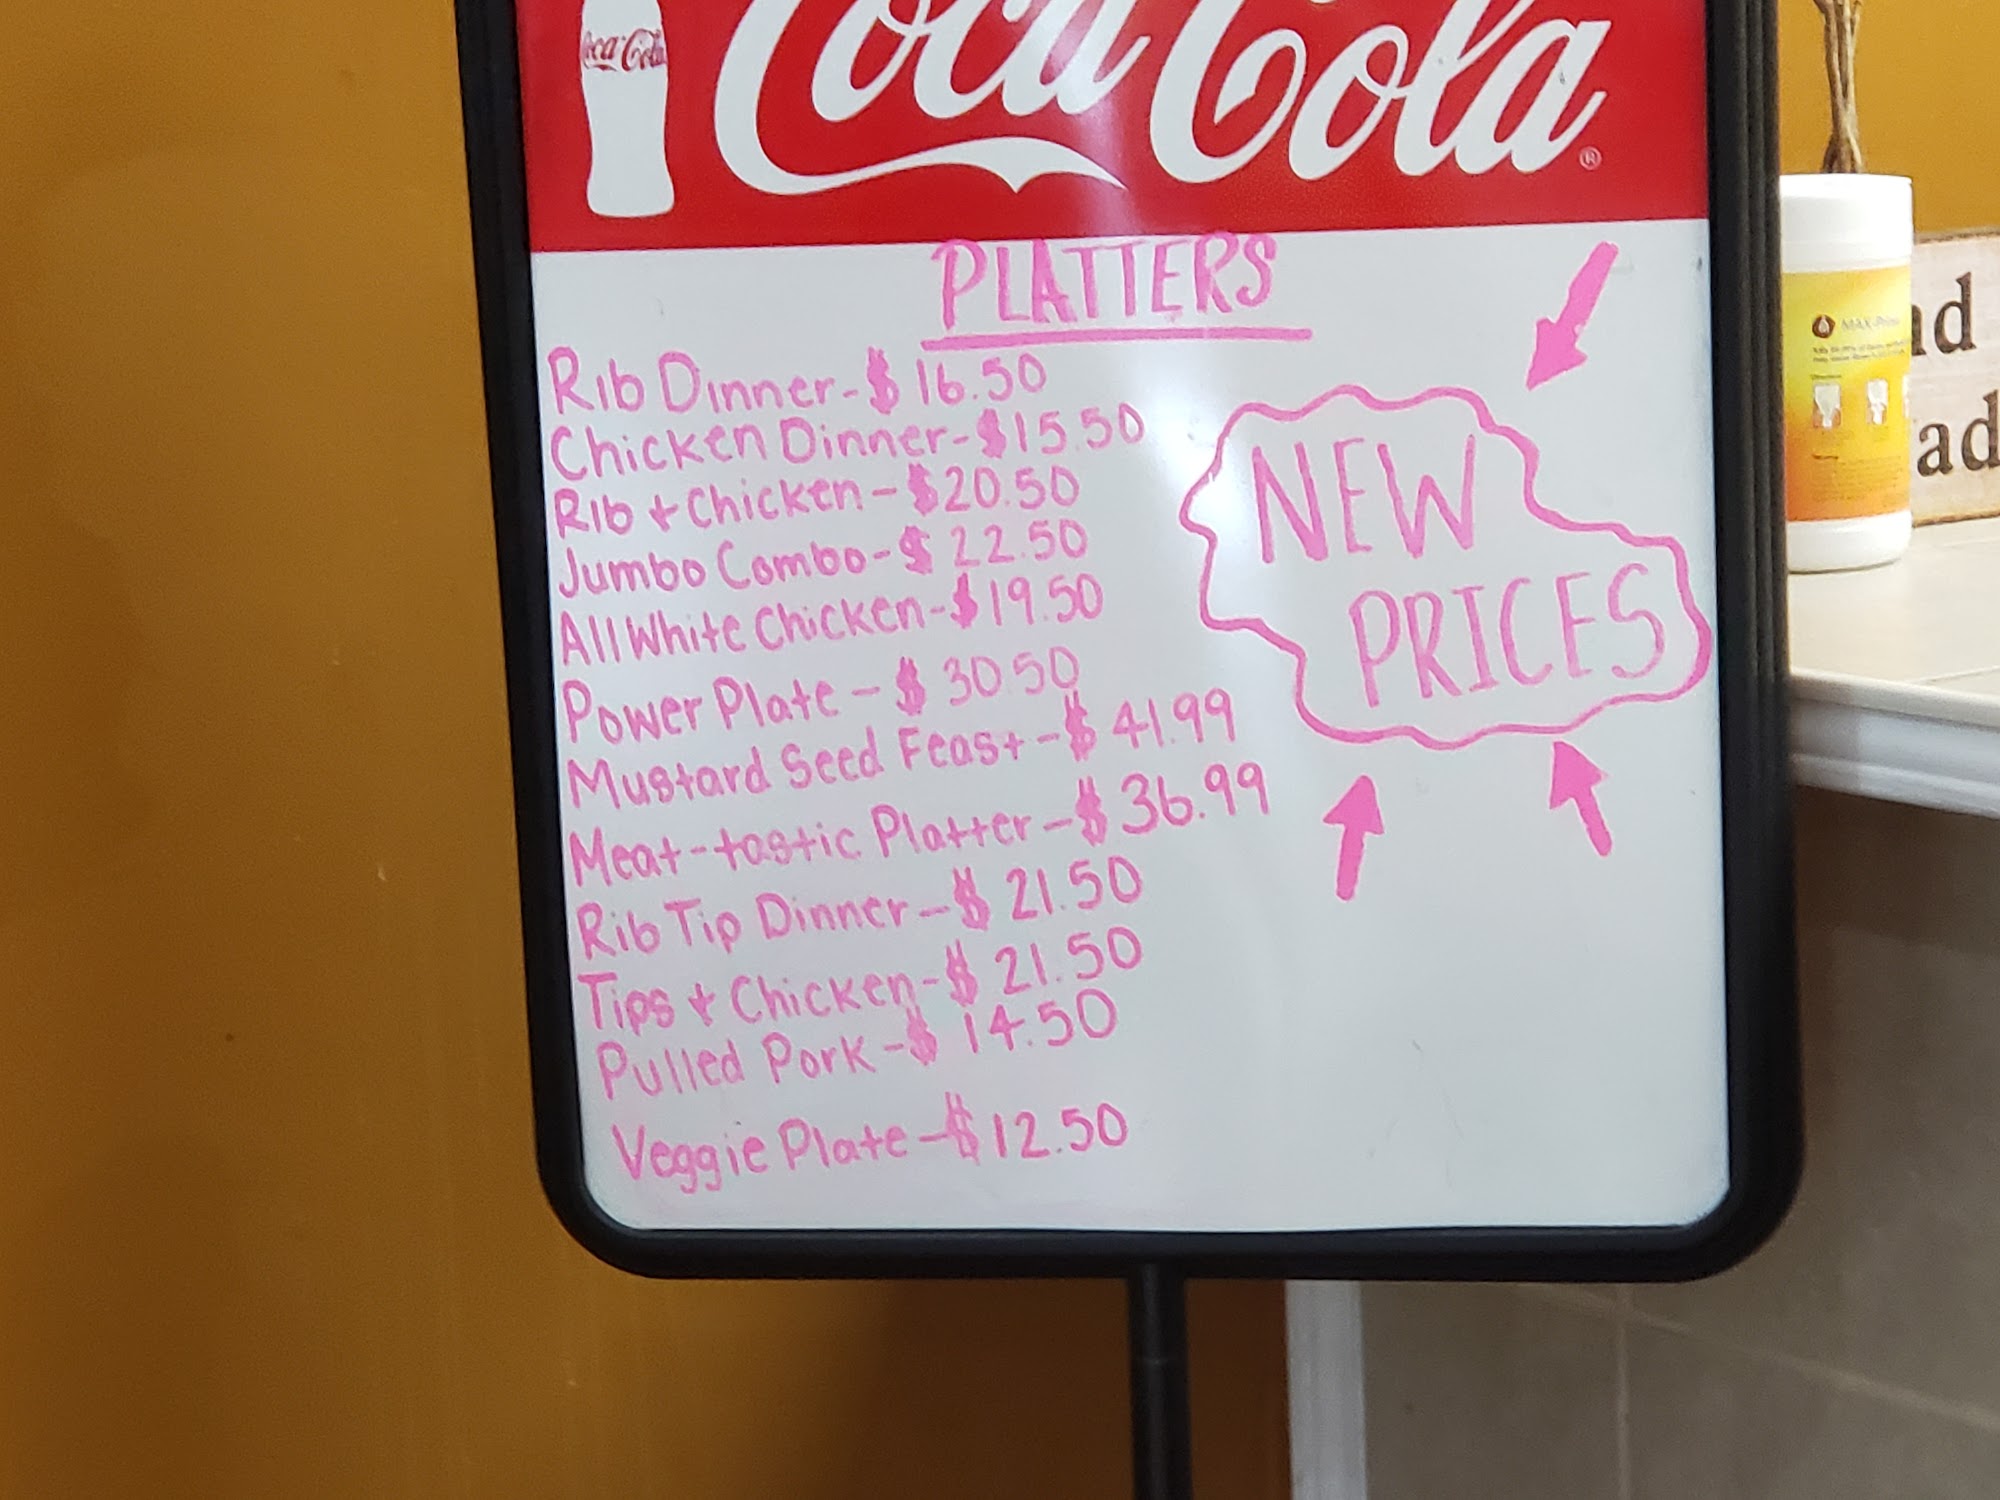 Coca-Cola
Coca-Cola ®
PLATTERS
Rib Dinner-$16.50
Chicken Dinner-$15.50
Rib + Chicken-$20.50
Jumbo Combo-$22.50
All White Chicken-$19.50
Power Plate-$30.50
Mustard Seed Feast-$41.99
Meat-tastic Platter-$36.99
Rib Tip Dinner-$21.50
Tips + Chicken-$21.50
Pulled Pork-$14.50
Veggie Plate-$12.50
NEW
PRICES
ad